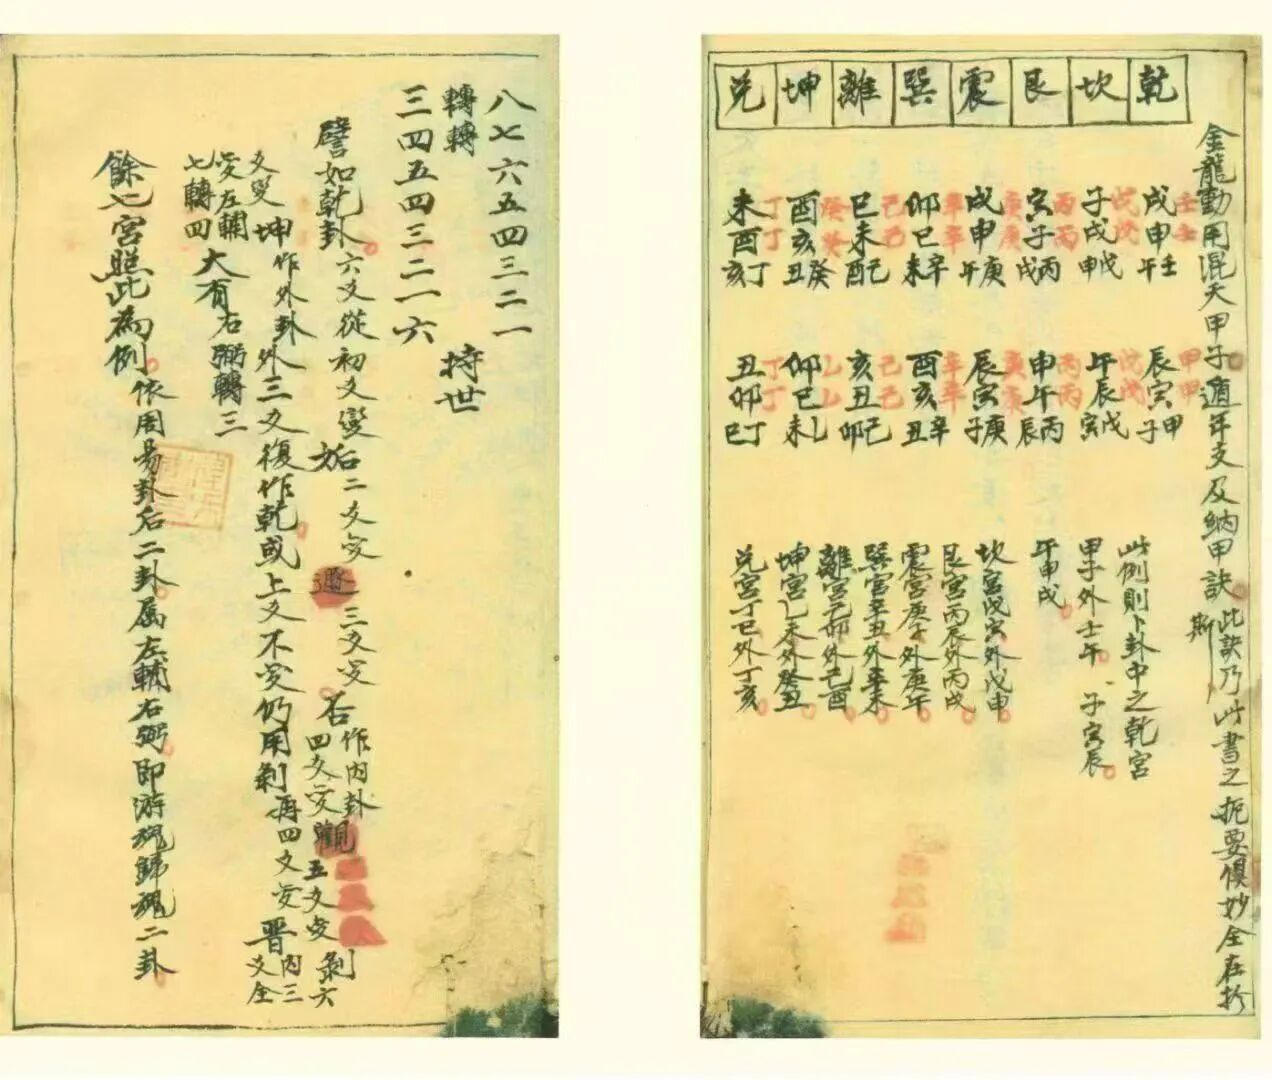 金龍動用混天甲子遁年支及納甲訣 此訣乃此書之扼要俱妙全在於
斯
乾 坎 艮 震 巽 離 坤 兌
壬壬
戌申午壬
戊戊
子戌申戊
丙丙
寅子戌丙
庚庚
戌申午庚
辛辛
卯巳未辛
己己
巳未酉己
癸癸
酉亥丑癸
丁丁
未酉亥丁
甲甲
辰寅子甲
戊戊
午辰寅戊
丙丙
申午辰丙
庚庚
辰寅子庚
辛辛
酉亥丑辛
己己
亥丑卯己
乙乙
卯巳未乙
丁丁
丑卯巳丁
此例則卜卦中之乾宮
甲子外壬午 子寅辰
午申戌
坎宮戊寅外戊申
艮宮丙辰外丙戌
震宮庚子外庚午
巽宮辛丑外辛未
離宮己卯外己酉
坤宮乙未外癸丑
兌宮丁巳外丁亥
八七六五四三二一
轉轉 持世
三四五四三二一六
譬如乾卦六爻從初爻變姤二爻变遯三爻变否作内卦四爻变觀五爻变剝六
爻变坤作外卦外三爻復作乾或上爻不变仍用剝再四爻变晋内三爻全
变左輔七轉四大有右弼轉三
餘七宮照此為例依周易卦后二卦属左輔右弼即游魂歸魂二卦